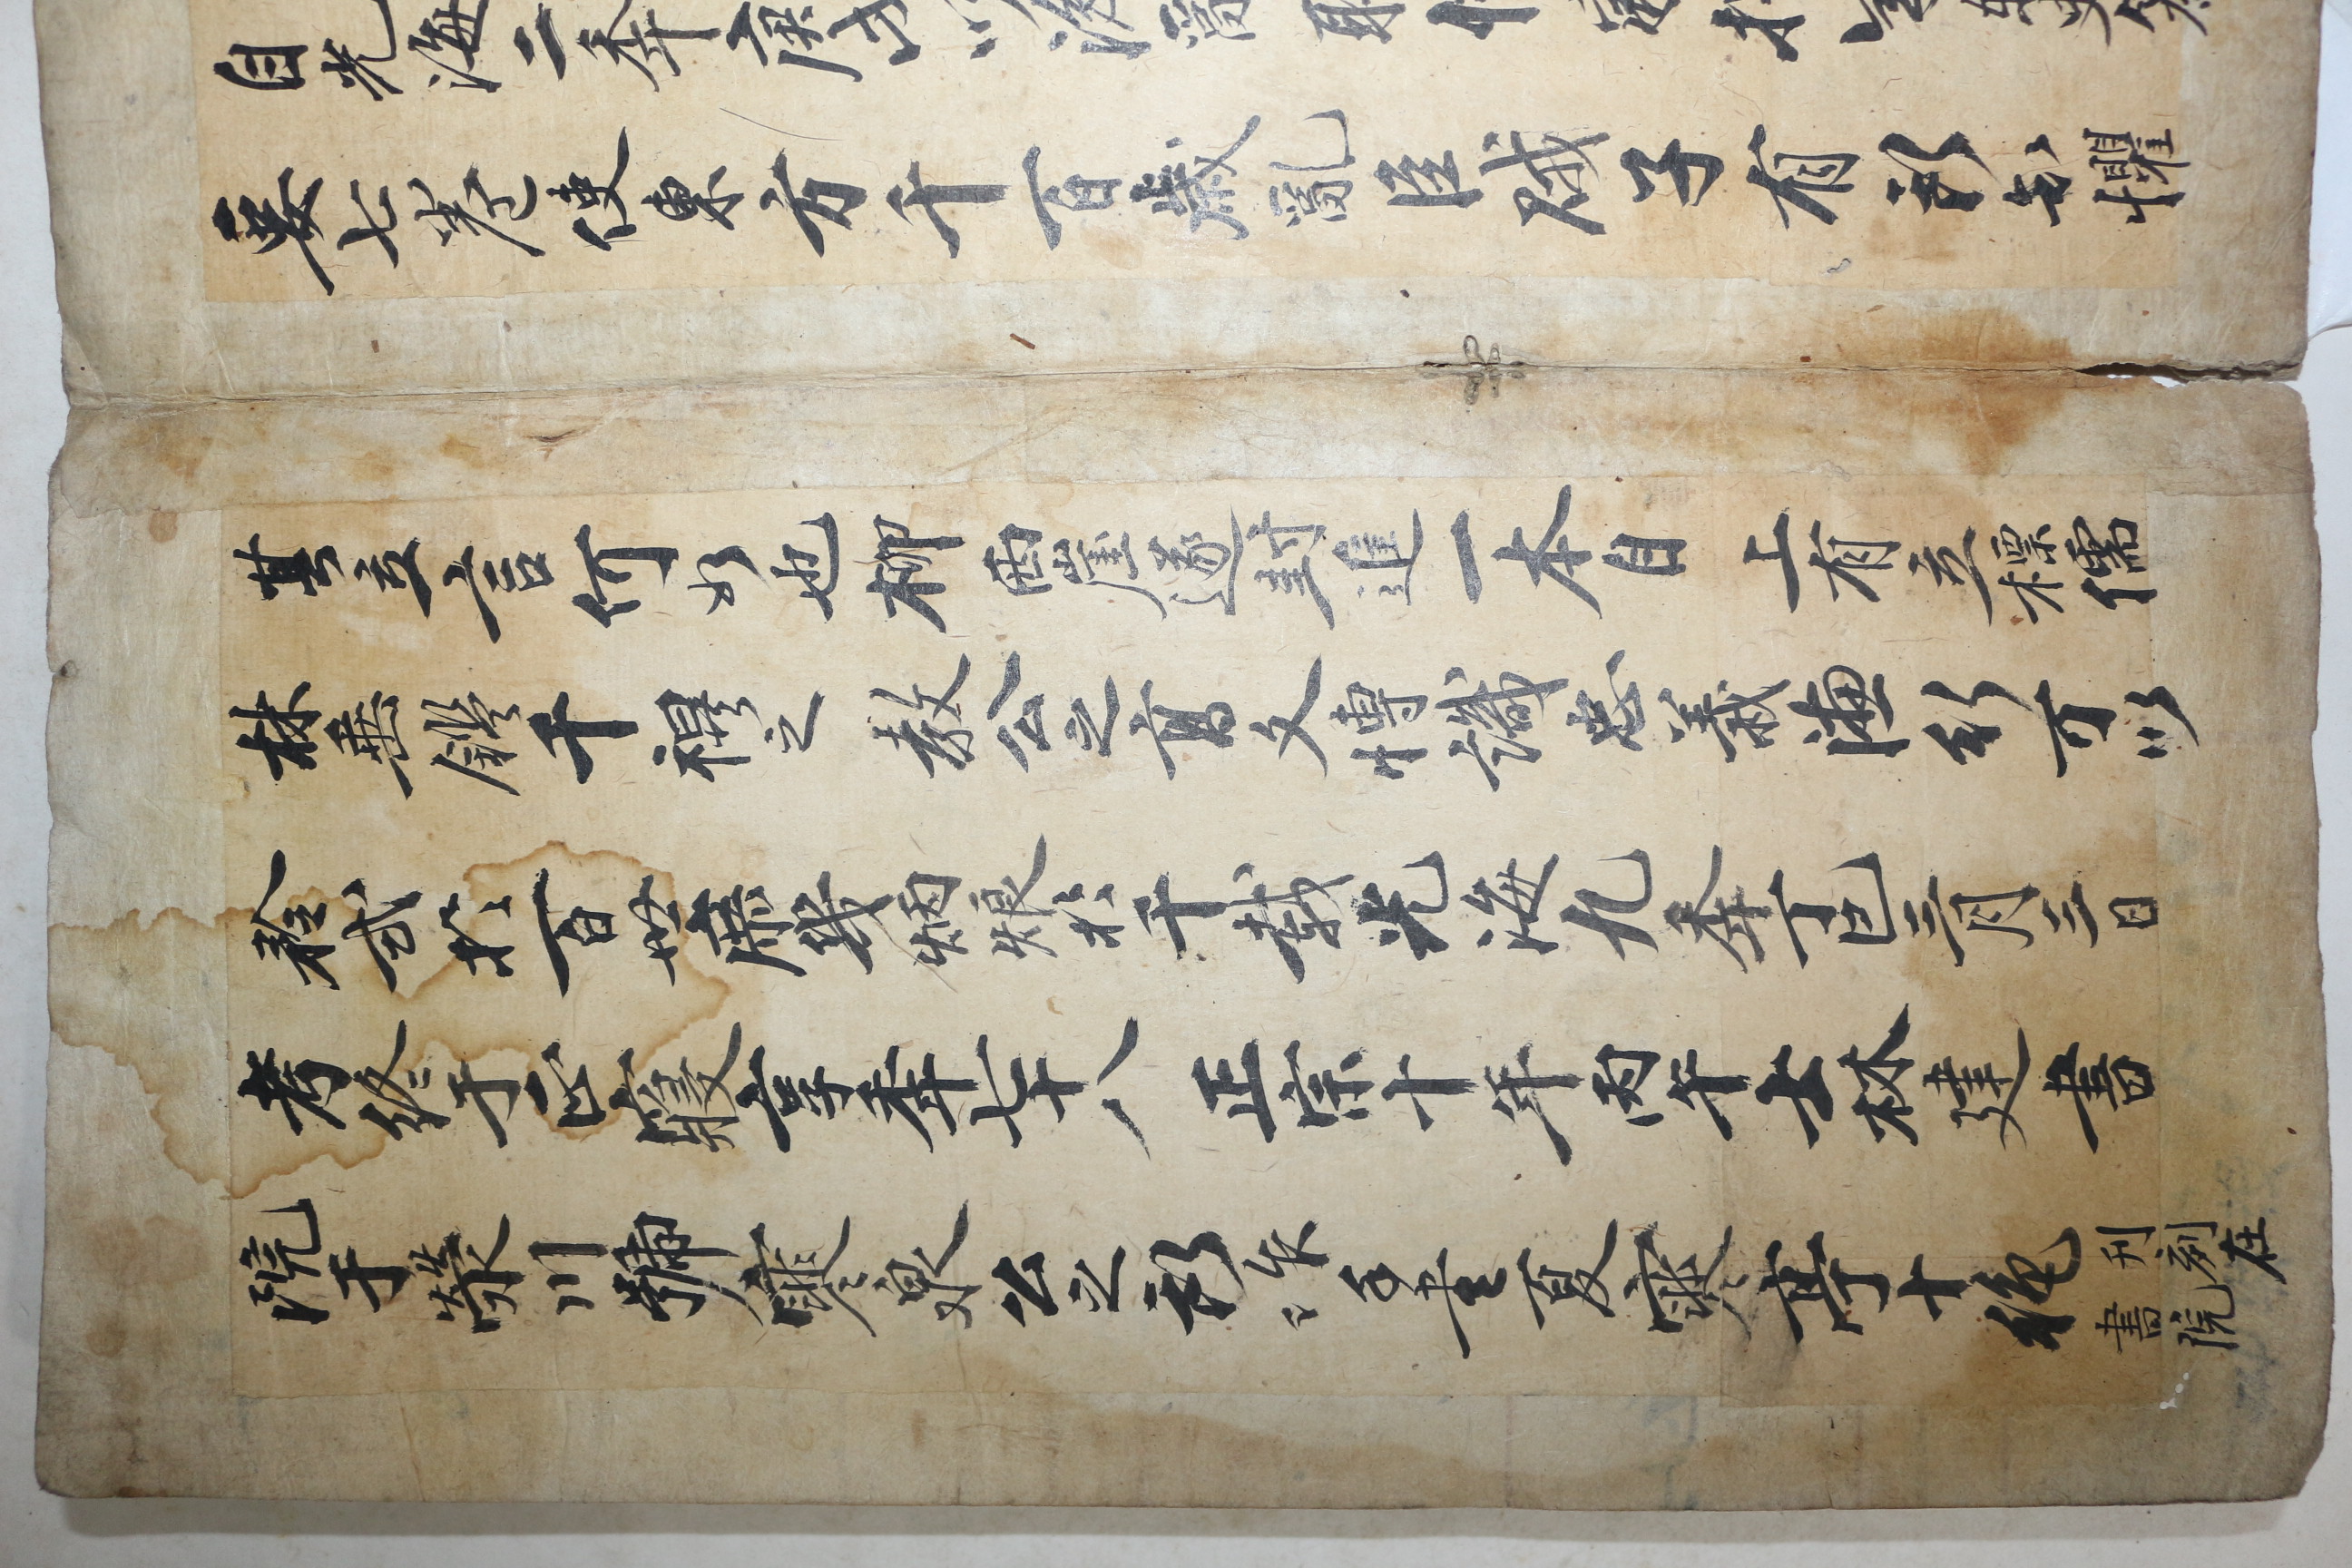 自光海二秊庚戌以後
要七卷使東方千百歲亂臣賊子有所知懼
其立言何如也柳西崖遂封進一本自 上有立標儒
林垂鑑千禩之 敎公之高文博識忠義德行可以
矜式於百世庶幾炳烺於千載光海九秊丁巳三月三日
考終于正寢享秊七十八 正宗十年丙午士林建書
院于滎川號寒泉公之所作手書夏寒亭十絶
刊刻在
書院